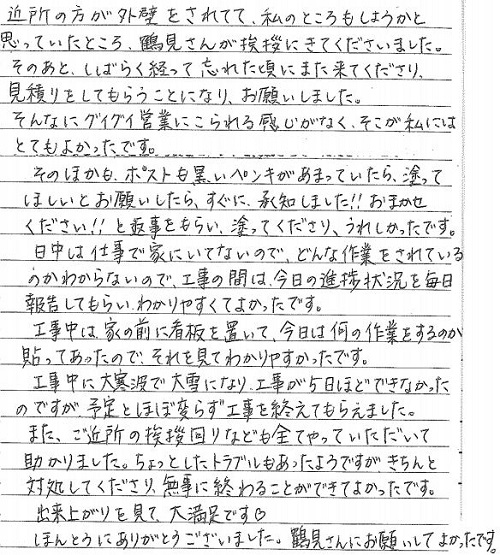 近所の方が外壁をされてて、私のところもしようかと
思っていたところ、鶴見さんが挨拶にきてくださいました。
そのあと、しばらく経って忘れた頃にまた来てくださり、
見積りをしてもらうことになり、お願いしました。
そんなにグイグイ営業にこられる感じがなく、そこが私には
とてもよかったです。
そのほかも、ポストも黒いペンキがあまっていたら、塗って
ほしいとお願いしたら、すぐに、承知しました!!おまかせ
ください!!と返事をもらい、塗ってくださり、うれしかったです。
日中は仕事で家にいてないので、どんな作業をされている
のかわからないので、工事の間は、今日の進捗状況を毎日
報告してもらい、わかりやすくてよかったです。
工事中は、家の前に看板を置いて、今日は何の作業をするのか
貼ってあったので、それを見てわかりやすかったです。
工事中に大寒波で大雪になり、工事が5日ほどできなかった
のですが、予定とほぼ変らず工事を終えてもらえました。
また、ご近所の挨拶回りなども全てやっていただいて
助かりました。ちょっとしたトラブルもあったようですがきちんと
対処してくださり、無事に終わることができてよかったです。
出来上がりを見て、大満足です♡
ほんとうにありがとうございました。鶴見さんにお願いしてよかったです